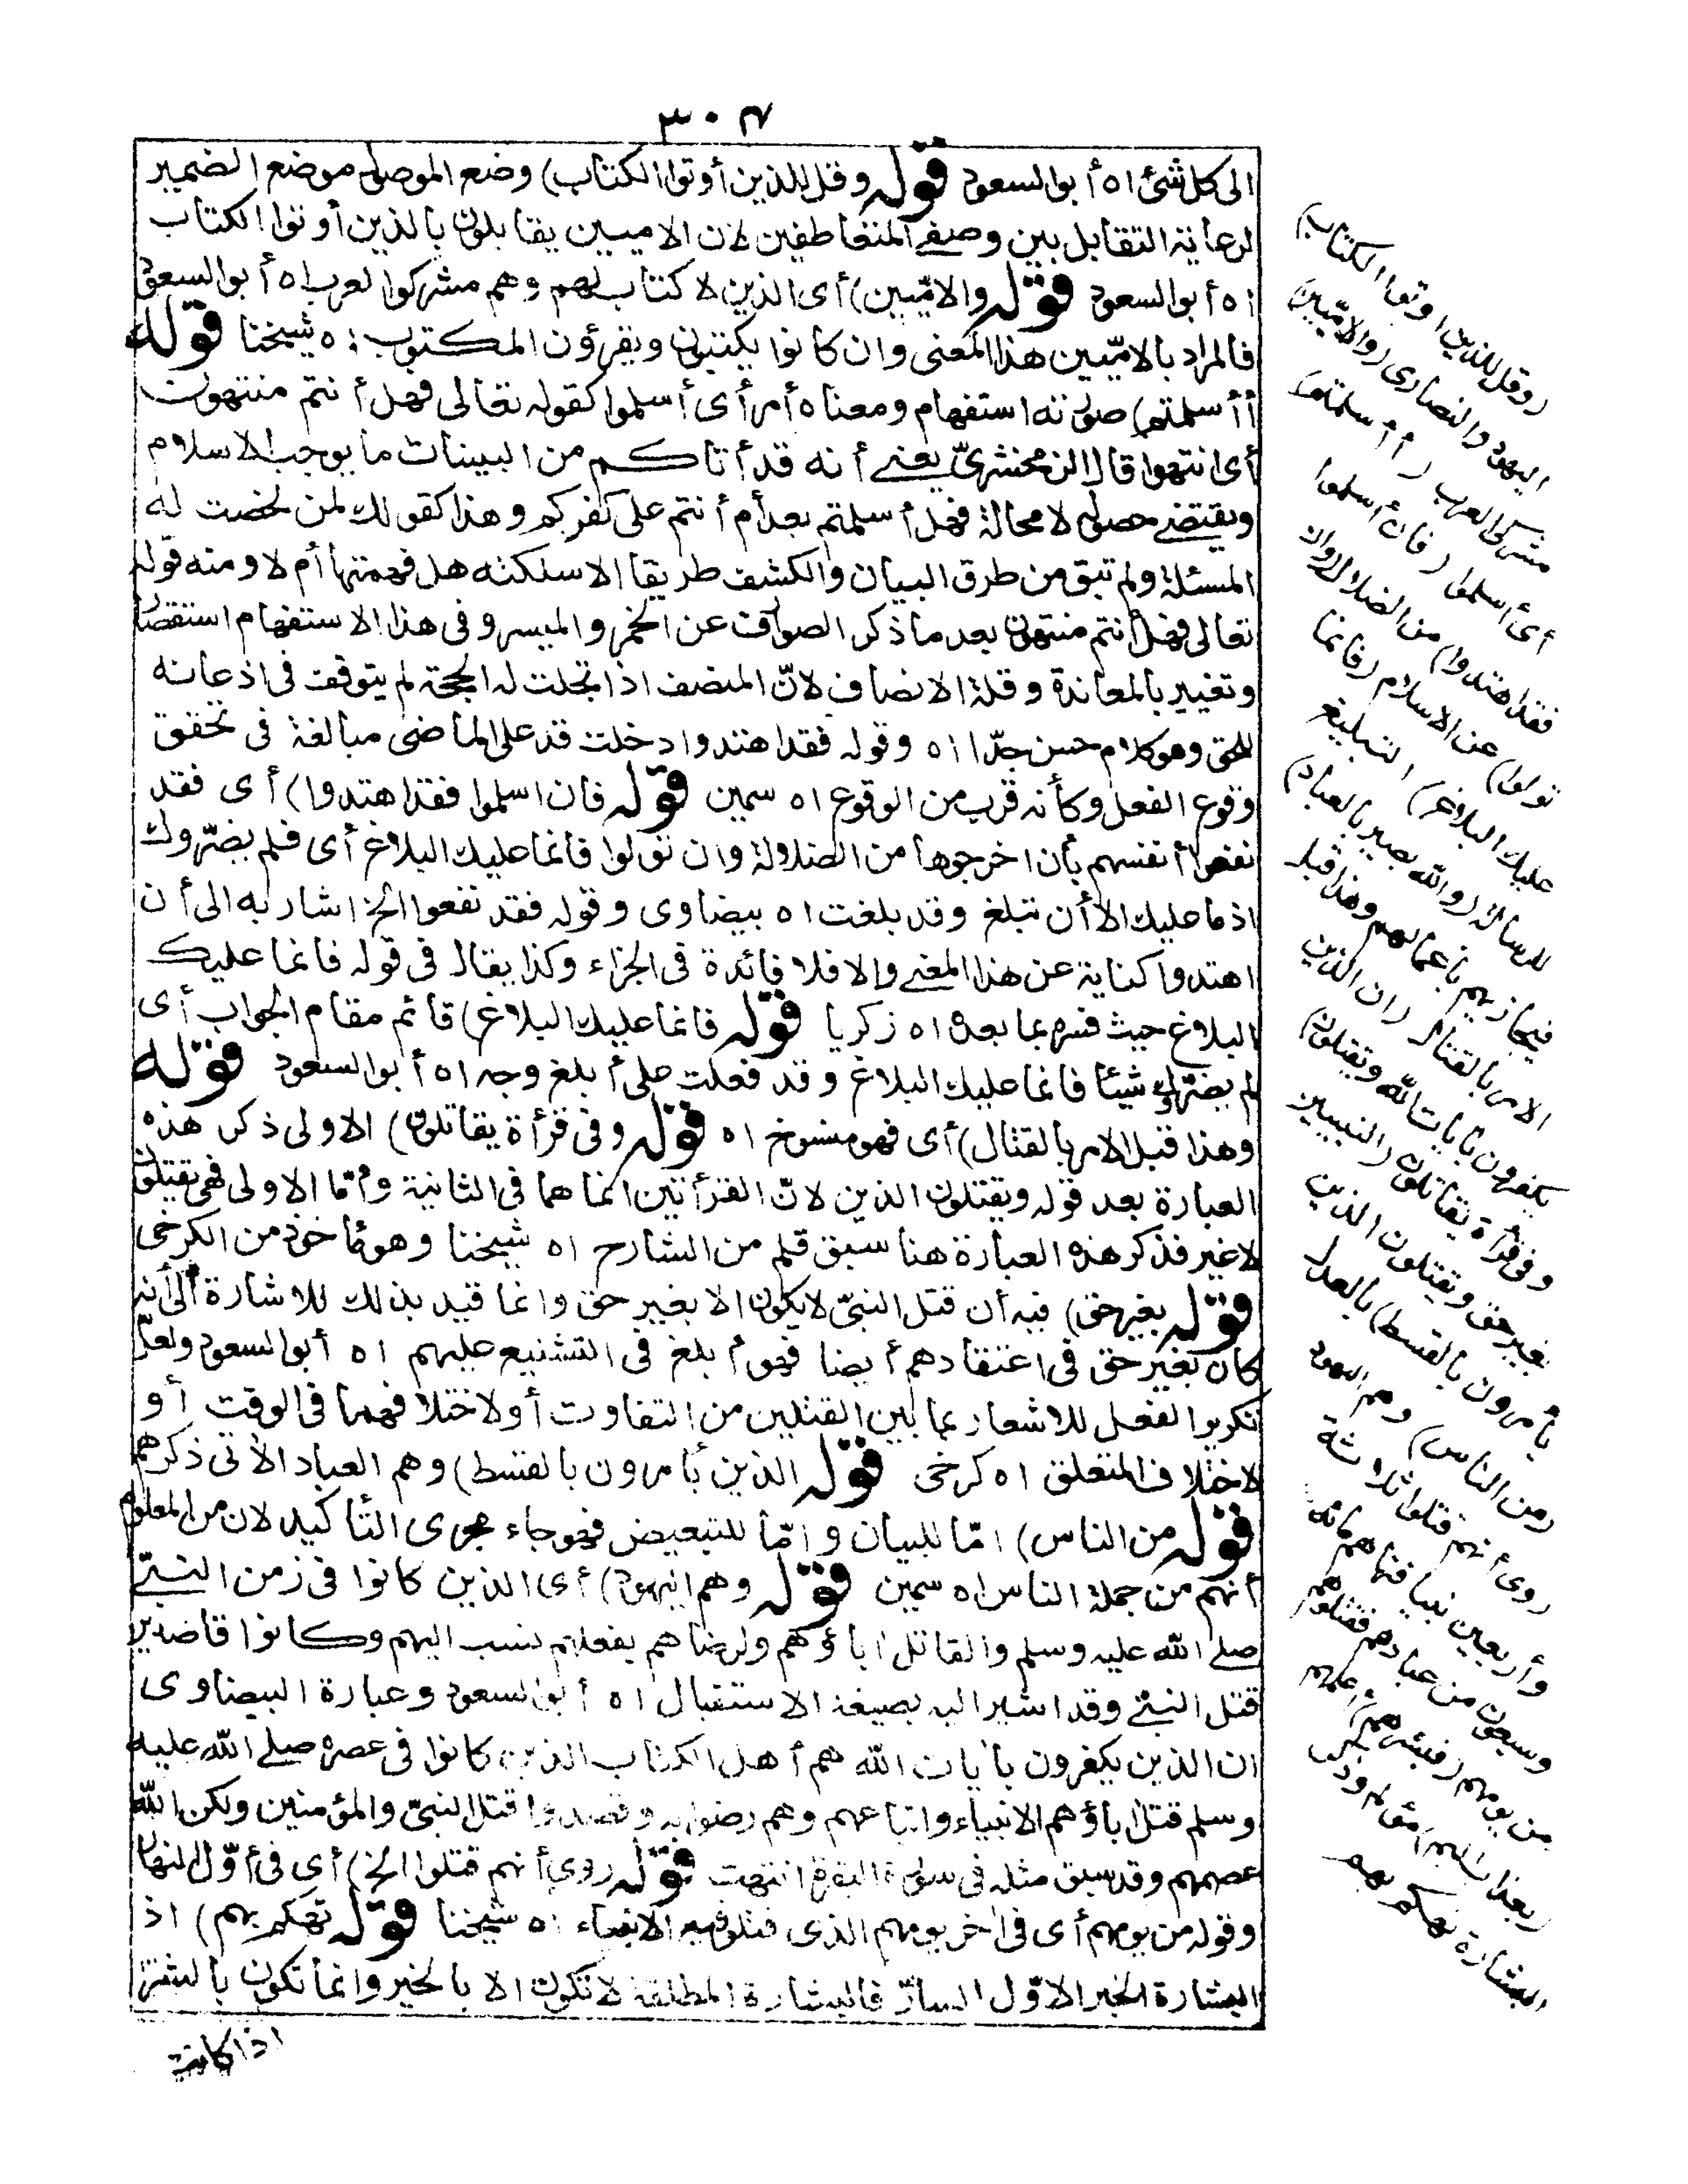 ٣٠٧
الى كل شئ اه أبو السعود قوله وقل للذين أوتوا الكتاب) وضع الموصول موضع الضمير
لرعاية التقابل بين وصفى المتعاطفين لان الاميين يقابلون بالذين أوتوا الكتاب
اه أبو السعود قوله والاميّين) أى الذين لا كتاب لهم وهم مشركوا لعرب اه أبو السعود
فالمراد بالاميّين هذا المعنى وان كانوا يكتبون ويقرؤن المكتوب اه شيخنا قوله
أأسلمتم) صورته استفهام ومعناه أمر أى أسلموا كقوله تعالى فهل أنتم منتهون
أى انتهوا قال الزمخشرىّ يعنى أنه قد أتاكم من البينات ما يوجب الاسلام
ويقتضى حصوله لا محالة فهل أسلمتم بعد أم أنتم على كفركم وهذا كقولك لمن لخصت له
المسئلة ولم تبق من طرق البيان والكشف طريقا الا سلكته هل فهمتها أم لا ومنه قوله
تعالى فهل أنتم منتهون بعد ما ذكر الصوارف عن الخمر والميسر وفى هذا الاستفهام استقصار
وتغيير بالمعاندة وقلة الانصاف لانّ المنصف اذا تجلت له الحجة لم يتوقف فى اذعانه
للحق وهو كلام حسن جدّا اه وقوله فقد اهتدوا دخلت قد على الماضى مبالغة فى تحقق
وقوع الفعل وكأنه قرب من الوقوع اه سمين قوله فان اسلموا فقد اهتدوا) أى فقد
نفعوا أنفسهم بأن اخرجوها من الضلالة وان تولوا فانما عليك البلاغ أى فلم يضرّوك
اذ ما عليك الا أن تبلغ وقد بلغت اه بيضاوى وقوله فقد نفعوا الخ اشار به الى أن
اهتدوا كناية عن هذا المعنى والا فلا فائدة فى الجزاء وكذا يقال فى قوله فانما عليك
البلاغ حيث فسره بما بعده اه زكريا قوله فانما عليك البلاغ) قائم مقام الجواب أى
لم يضروك شيئا فانما عليك البلاغ وقد فعلت على أبلغ وجه اه أبو السعود قوله
وهذا قبل الامر بالقتال) أى فهو منسوخ اه قوله وفى قرأة يقاتلون) الاولى ذكر هذه
العبارة بعد قوله ويقتلون الذين لانّ القرأتين انما هما فى الثانية وأمّا الاولى فهى يقتلون
لا غير فذكر هذه العبارة هنا سبق قلم من الشارح اه شيخنا وهو مأخوذ من الكرخى
قوله بغير حق) فيه أن قتل النبىّ لا يكون الا بغير حق وانما قيد بذلك للاشارة الى أنه
كان بغير حق فى اعتقادهم أيضا فهو أبلغ فى التشنيع عليهم اه أبو السعود ولعلّ
تكرير الفعل للاشعار بما بين القتلين من التفاوت أو لاختلافهما فى الوقت أو
لاختلاف المتعلق اه كرخى قوله الذين يأمرون بالقسط) وهم العباد الآتى ذكرهم
قوله من الناس) امّا للبيان وامّا للتبعيض فهو جاء مجرى التأكيد لان من المعلوم
أنهم من جملة الناس اه سمين قوله وهم اليهود) أى الذين كانوا فى زمن النبىّ
صلى الله عليه وسلم والقاتل اباؤهم ولرضاهم بفعلهم نسب اليهم وكانوا قاصدين
قتل النبىّ وقد اشير اليه بصيغة الاستقبال اه أبو السعود وعبارة البيضاوى
ان الذين يكفرون بآيات الله هم أهل الكتاب الذين كانوا فى عصره صلى الله عليه
وسلم قتل اباؤهم الانبياء واتباعهم وهم رضوا به وقصدوا قتل النبىّ والمؤمنين ولكن الله
عصمهم وقد سبق مثله فى سورة البقرة انتهت قوله روى أنهم قتلوا الخ) أى فى أوّل النهار
وقوله من يومهم أى فى اخر يومهم الذى قتلوا فيه الانبياء اه شيخنا قوله تهكم بهم) اذ
البشارة الخبر الاوّل السارّ فالبشارة المطلقة لا تكون الا بالخير وانما تكون بالشرّ
اذا كانت
(وقل للذين اوتوا الكتاب)
اليهود والنصارى (والاميّين)
مشركى العرب (أأسلمتم)
أى أسلموا (فان أسلموا
فقد اهتدوا) من الضلال (وان
تولوا) عن الاسلام (فانما
عليك البلاغ) التبليغ
للرسالة (والله بصير بالعباد)
فيجازيهم باعمالهم وهذا قبل
الامر بالقتال (ان الذين
يكفرون بآيات الله ويقتلون)
وفى قرأة يقاتلون (النبيين
بغير حق ويقتلون الذين
يأمرون بالقسط) بالعدل
(من الناس) وهم اليهود
روى أنهم قتلوا ثلاثة
وأربعين نبيا فنهاهم مائة
وسبعون من عبادهم فقتلوهم
من يومهم (فبشرهم) أعلمهم
(بعذاب اليم) مؤلم وذكر
البشارة تهكم بهم